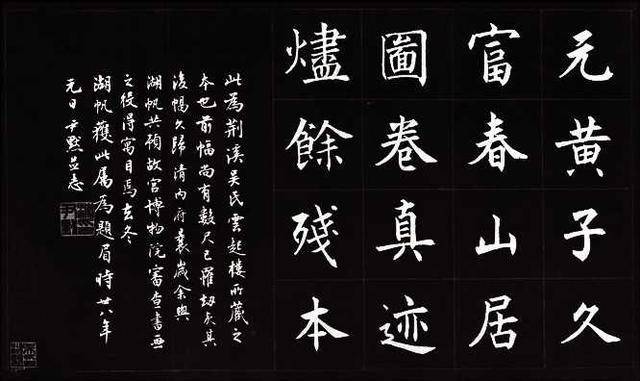 元黄子久
富春山居
圖卷真迹
燼餘殘本
此為荆溪吳氏雲起樓所藏之
本也前幅尚有數尺已罹劫火其
後幅久歸清內府曩歲余與
湖帆共預故宮博物院審查書畫
之役得寓目焉玄冬
湖帆獲此属為題眉時廿八年
元日尹默並志